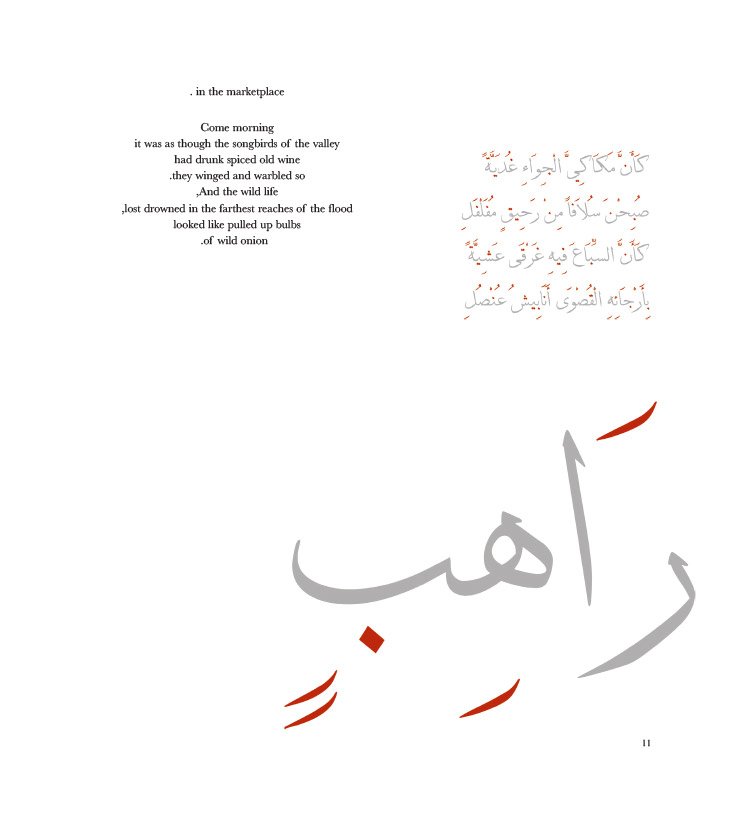 . in the marketplace
Come morning
it was as though the songbirds of the valley
had drunk spiced old wine
.they winged and warbled so
,And the wild life
,lost drowned in the farthest reaches of the flood
looked like pulled up bulbs
.of wild onion
كَأَنَّ مَكَاكِيَّ الْجِوَاءِ غُدَيَّةً
صُبِحْنَ سُلاَفاً مِنْ رَحِيقٍ مُفَلْفَلِ
كَأَنَّ السِّبَاعَ فِيهِ غَرْقَى عَشِيَّةً
بِأَرْجَائِهِ الْقُصْوَى أَنَابِيشُ عُنْصُلِ
رَاهِبٍ
11